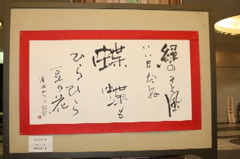 緑のそよ風
いい日だね
蝶蝶も
ひらひら
豆の花